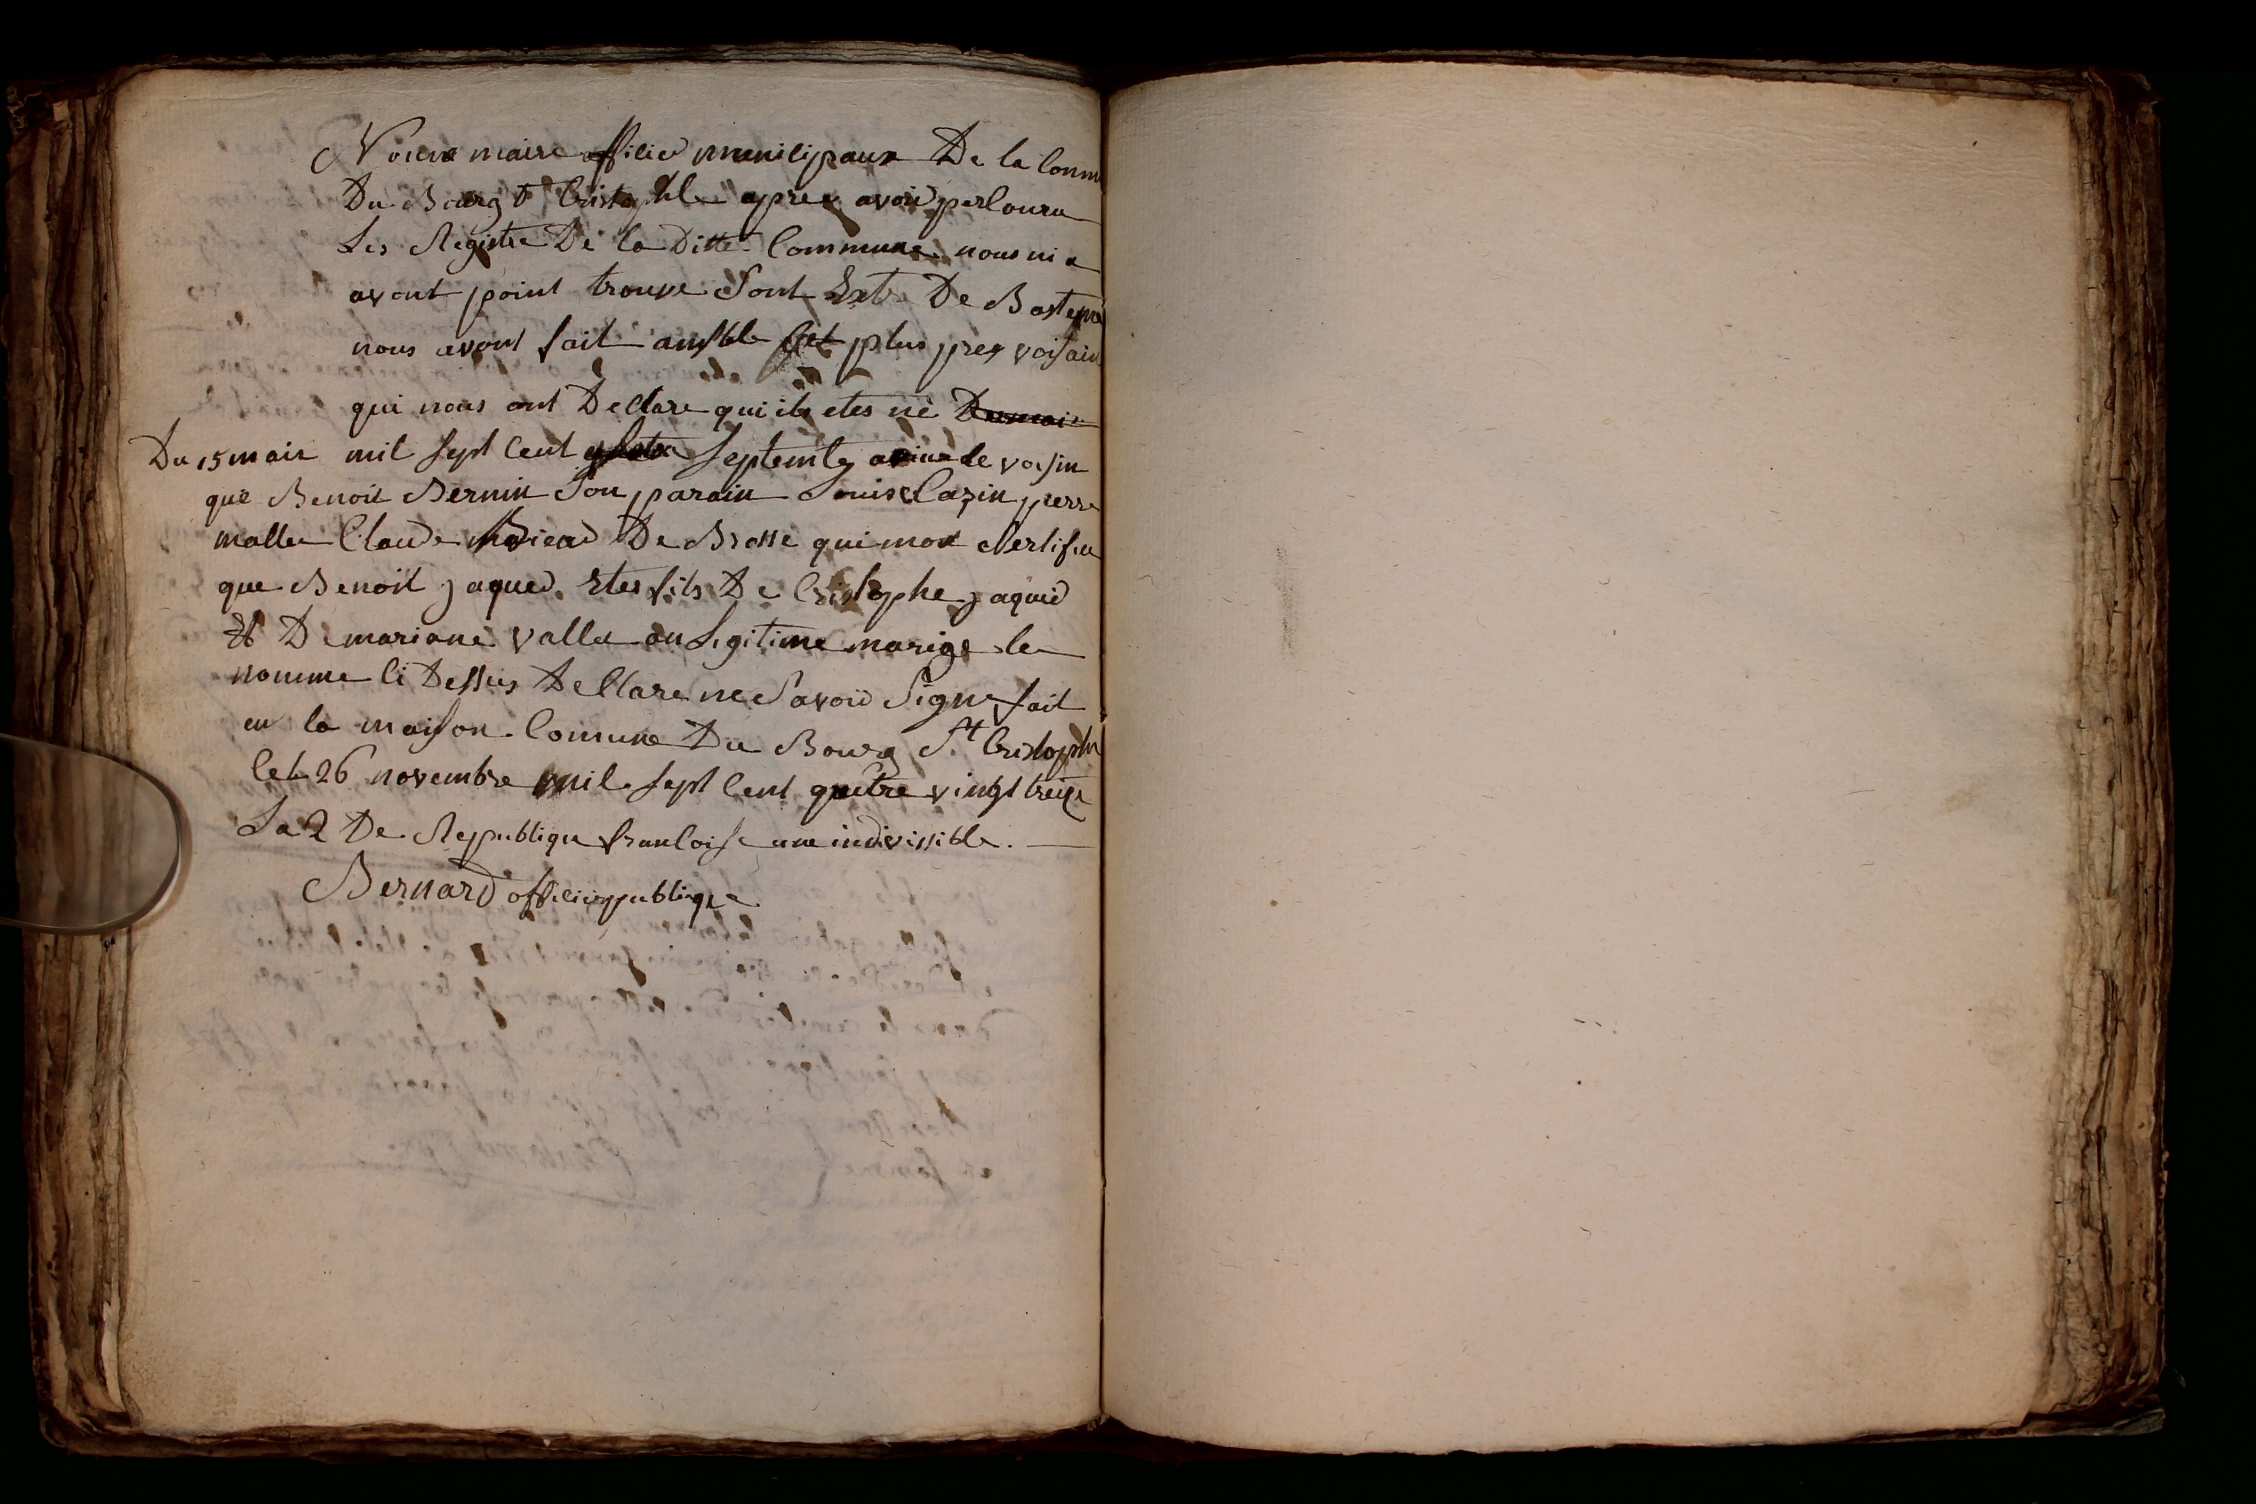 maire officier municipaux De la Comm
Du Bourg St Cristophle apres avoir percouru
Les Registre De la Ditte Commune nous ni a
avont point trouve Sont Extr De Bastem
nous avont fait amsble plus pres voisain
qui nous ont Declare qui ils etes nè
Du 15 mair mil sept Cent Septente voisin
que Benoit Bernin Son parain Louise Cazin
Claude De Brosse qui mon Sertifiu
que Benoit jaquer Etes fils De Cristophe jaquier
Et De mariane valla an Legitime marige le
nomme Ci Dessus De Clare ne Savoir Signe fait
en la maison Comune Du Bourg St Cristophe
Cet 26 novembre mil sept Cent quatre vingt treize
La 2 De Republique francoise une indivissible.
Bernard officier publique